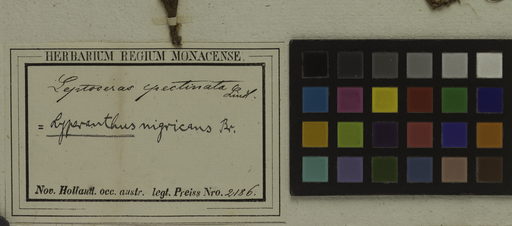 HERBARIUM REGIUM MONACENSE.
Leptoceras pectinata Lindl.
= Lyperanthus nigricans Br.
Nov. Holland. occ. austr. legt. Preiss Nro. 2186.